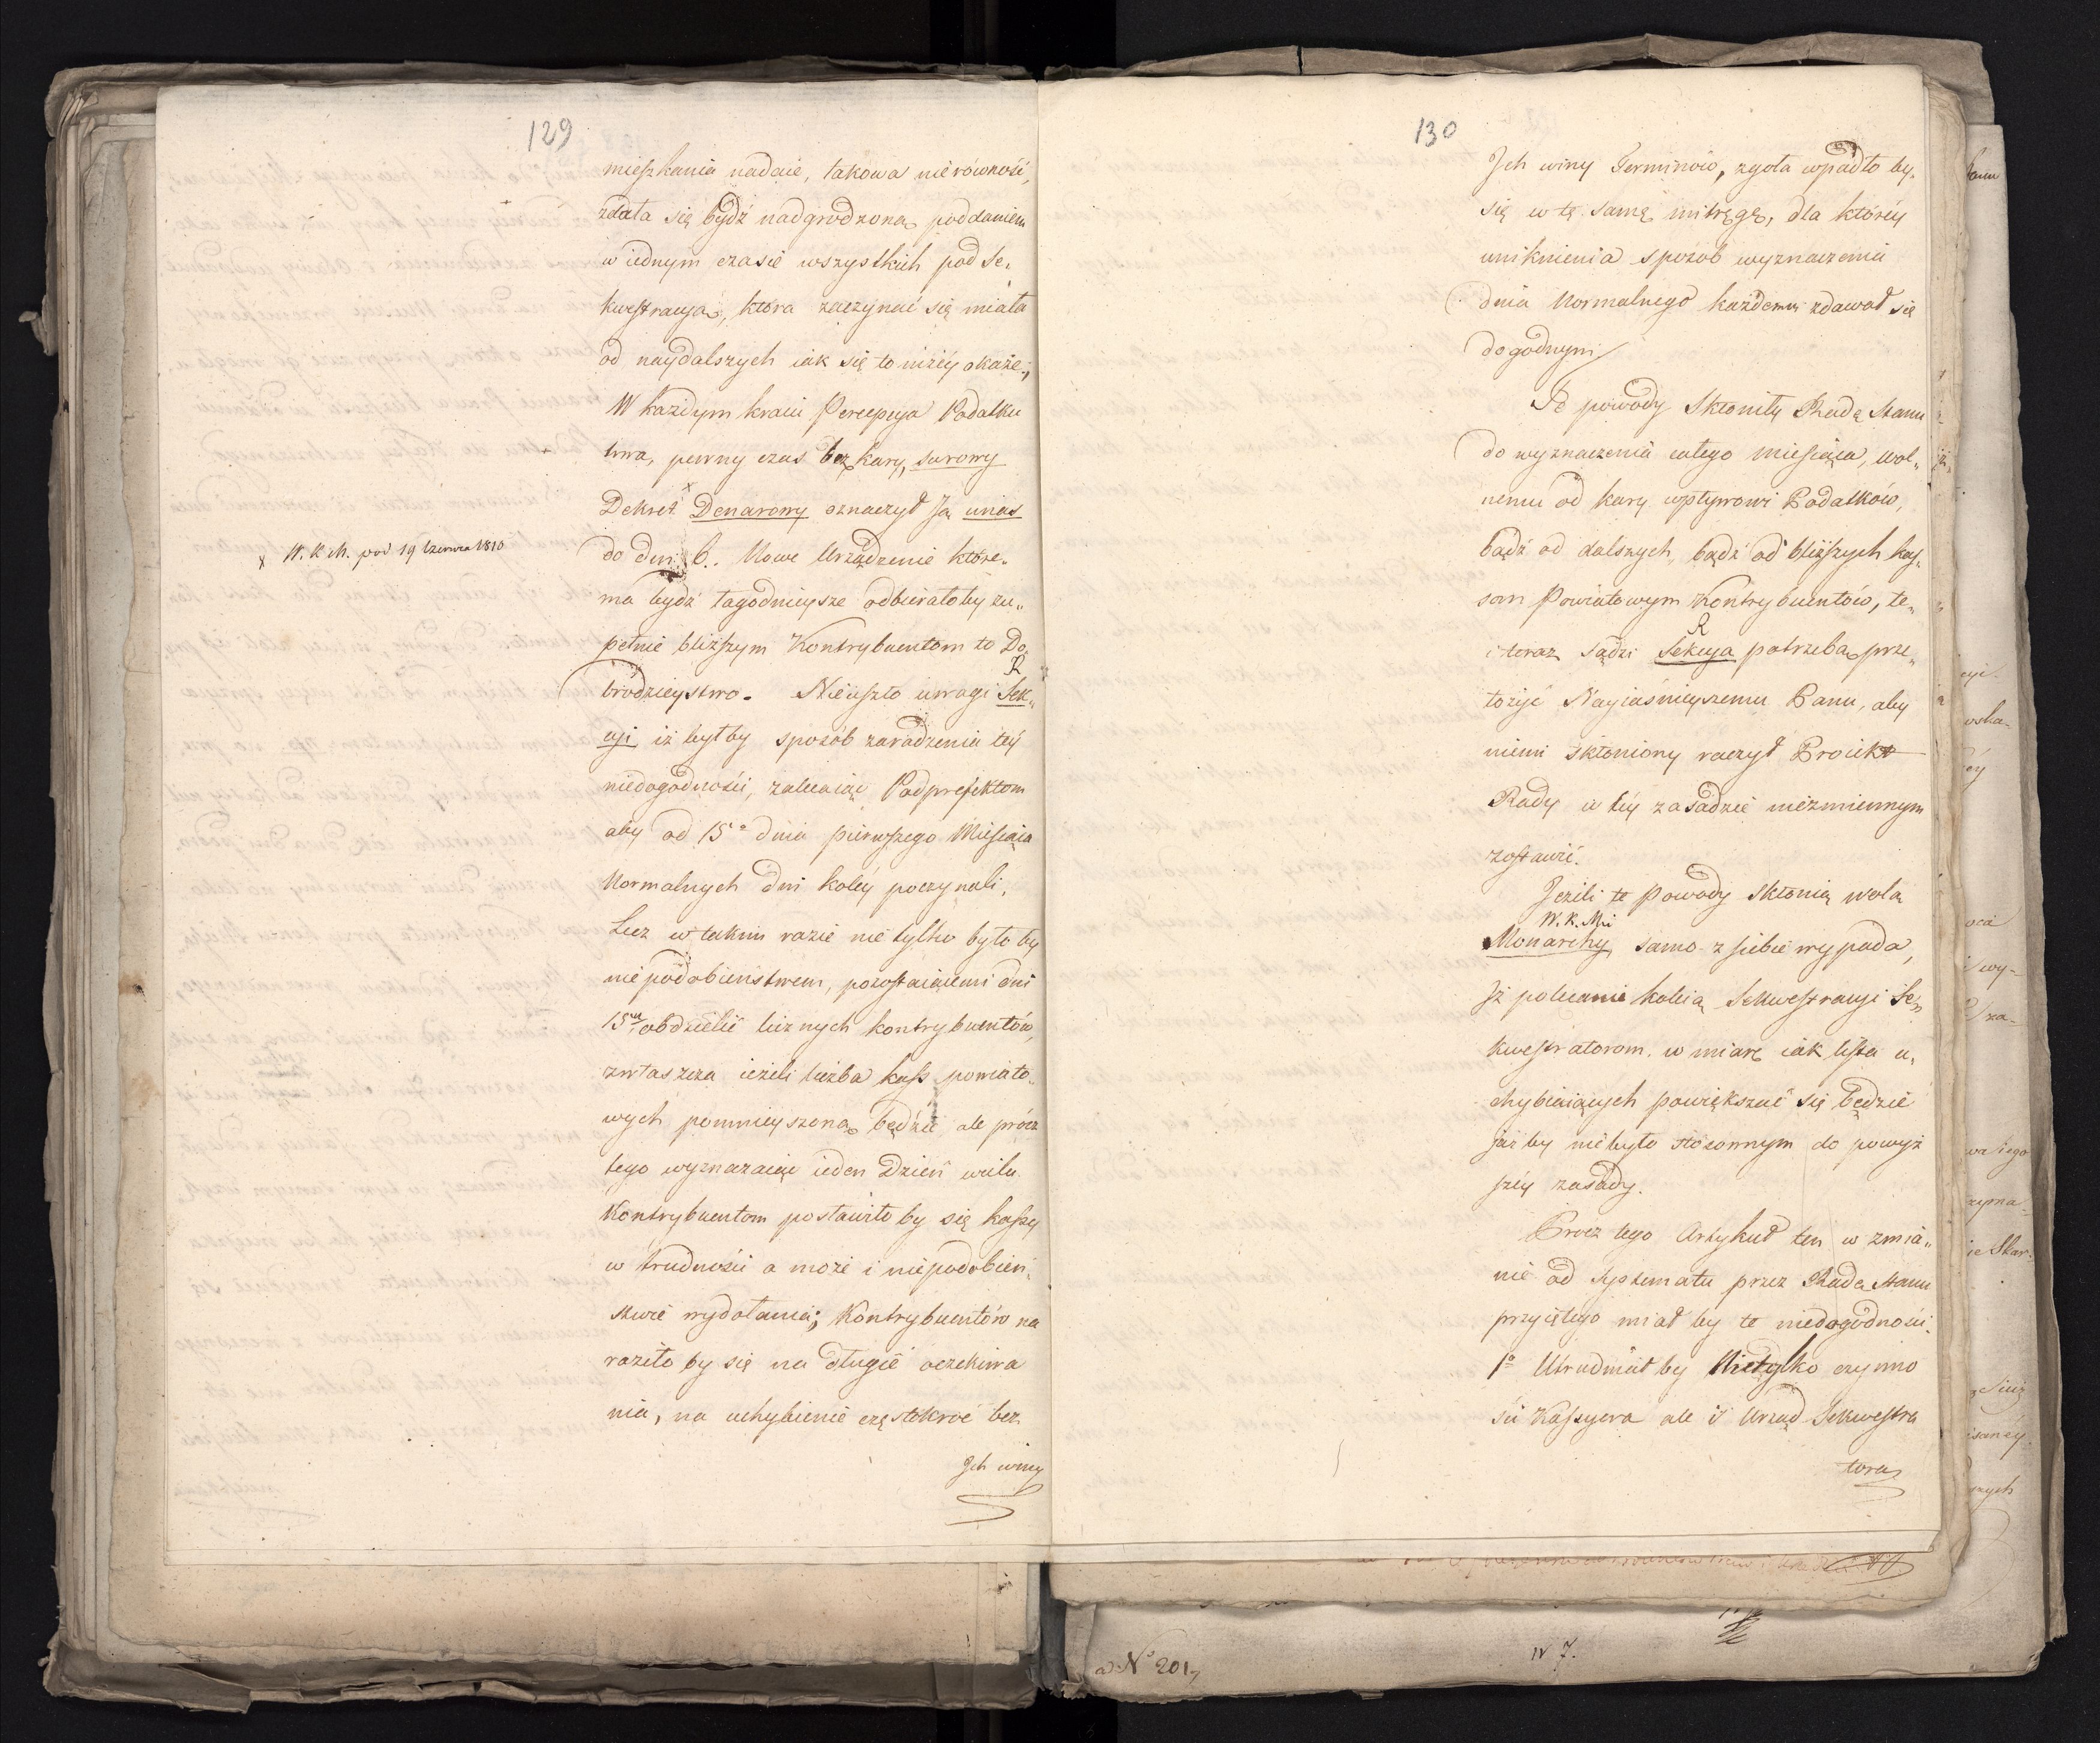 129
mieszkania nadaie, takowa nierówność,
zdała się bydź nadgrodzoną poddaniem
w iednym czasie wszystkich pod Se„
kwestracyą, która zaczynać się miała
od naydalszych iak się to niżéy okaże;
W każdym kraiu Percepcya Podatku
trwa, pewny czas bez kary, surowy
Dekret x Denarowy oznaczył Ją unas
x W. K. M. pod 19 Czerwca 1810
do dni 6. Nowe Urządzenie które„
ma bydź łagodnieysze odbierałoby zu„
pełnie bliższym Kontrybuentom to Do„
R
brodzieystwo. Nieuszło uwagi Sek„
cyi iż byłby sposób zaradzenia téy
niedogodności, zalecaiąc Podprefektom
aby od 15o dnia pierwszego Miesiąca
Normalnych dni koléy poczynali,
Lecz w takim razie nie tylko było by
niepodobieństwem, pozostaiącemi dni
15tu obdzielić licznych kontrybuentów,
zwłaszcza ieżeli liczba kass powiato„
wych pomnieyszoną będzie ale prócz
tego wyznaczaiąc ieden Dzień wielu
Kontrybuentom postawiło by się kassy
w trudności a może i niepodobień„
stwie wydołania; Kontrybuentów na
raziło by się na długie oczekiwa
nia, na uchybienie częstokroć bez
Ich winy
130
Ich winy Terminów, zgoła wpadło by„
się w tę samę mitręgę, dla któréy
uniknienia sposób wyznaczenia
dnia Normalnego każdemu zdawał się
dogodnym
Te powody Skłoniły Radę Stanu
do wyznaczenia całego miesiąca, wol„
nemu od kary wpływowi Podatków,
bądź od dalszych, bądź od bliższych kas„
som Powiatowym Kontrybuentów, te„
R
i teraz sądzi Sekcya potrzebą prze„
łożyć Nayiaśnieyszemu Panu, aby
niemi skłoniony raczył Proiekt
Rady w téy zasadzie niezmiennym
zostawić.
Jeżeli te Powody Skłonią wolą
W. K. Mci
Monarchy samo z siebie wypada,
Iż polecanie koleią Sekwestracyi Se„
kwestratorom w miarę iak lista u„
chybiaiących powiększać się będzie
jużby niebyło stosownym do powyż
széy zasady.
Procz tego Artykuł ten w zmia„
nie od systematu przez Radę Stanu
przyiętego miał by te niedogodności.
1o Utrudniałby Nietylko czynno
ści Kassyera ale i Urząd Sekwestra
tora
a No 201,
N 7.